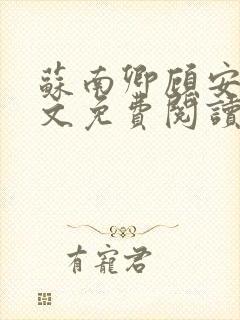 蘇南卿顧安
文免費閱讀
有寵君